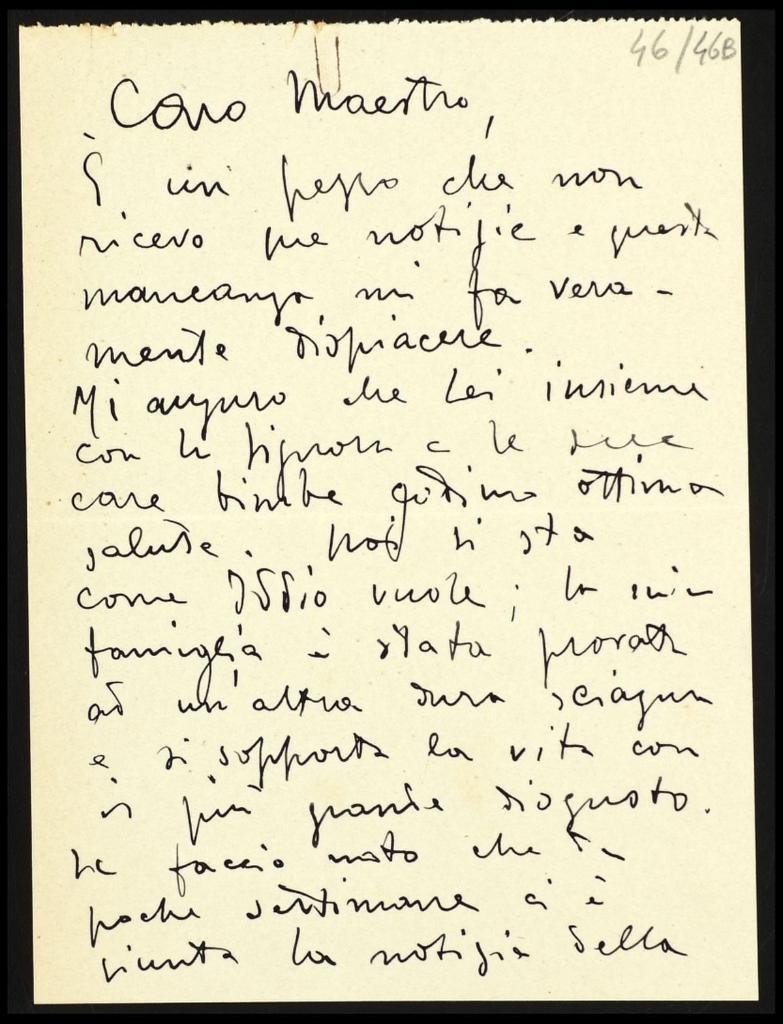 46/46B
Caro Maestro,
È un pezzo che non
ricevo sue notizie e questa
mancanza mi fa vera-
mente dispiacere.
Mi auguro che Lei insieme
con la Signora e le sue
care bimbe godino ottima
salute. Noi si sta
come Iddio vuole; la mia
famiglia è stata provata
ad un'altra dura sciagura
e si sopporta la vita con
il più grande disgusto.
Le faccio noto che da
poche settimane ci è
giunta la notizia della